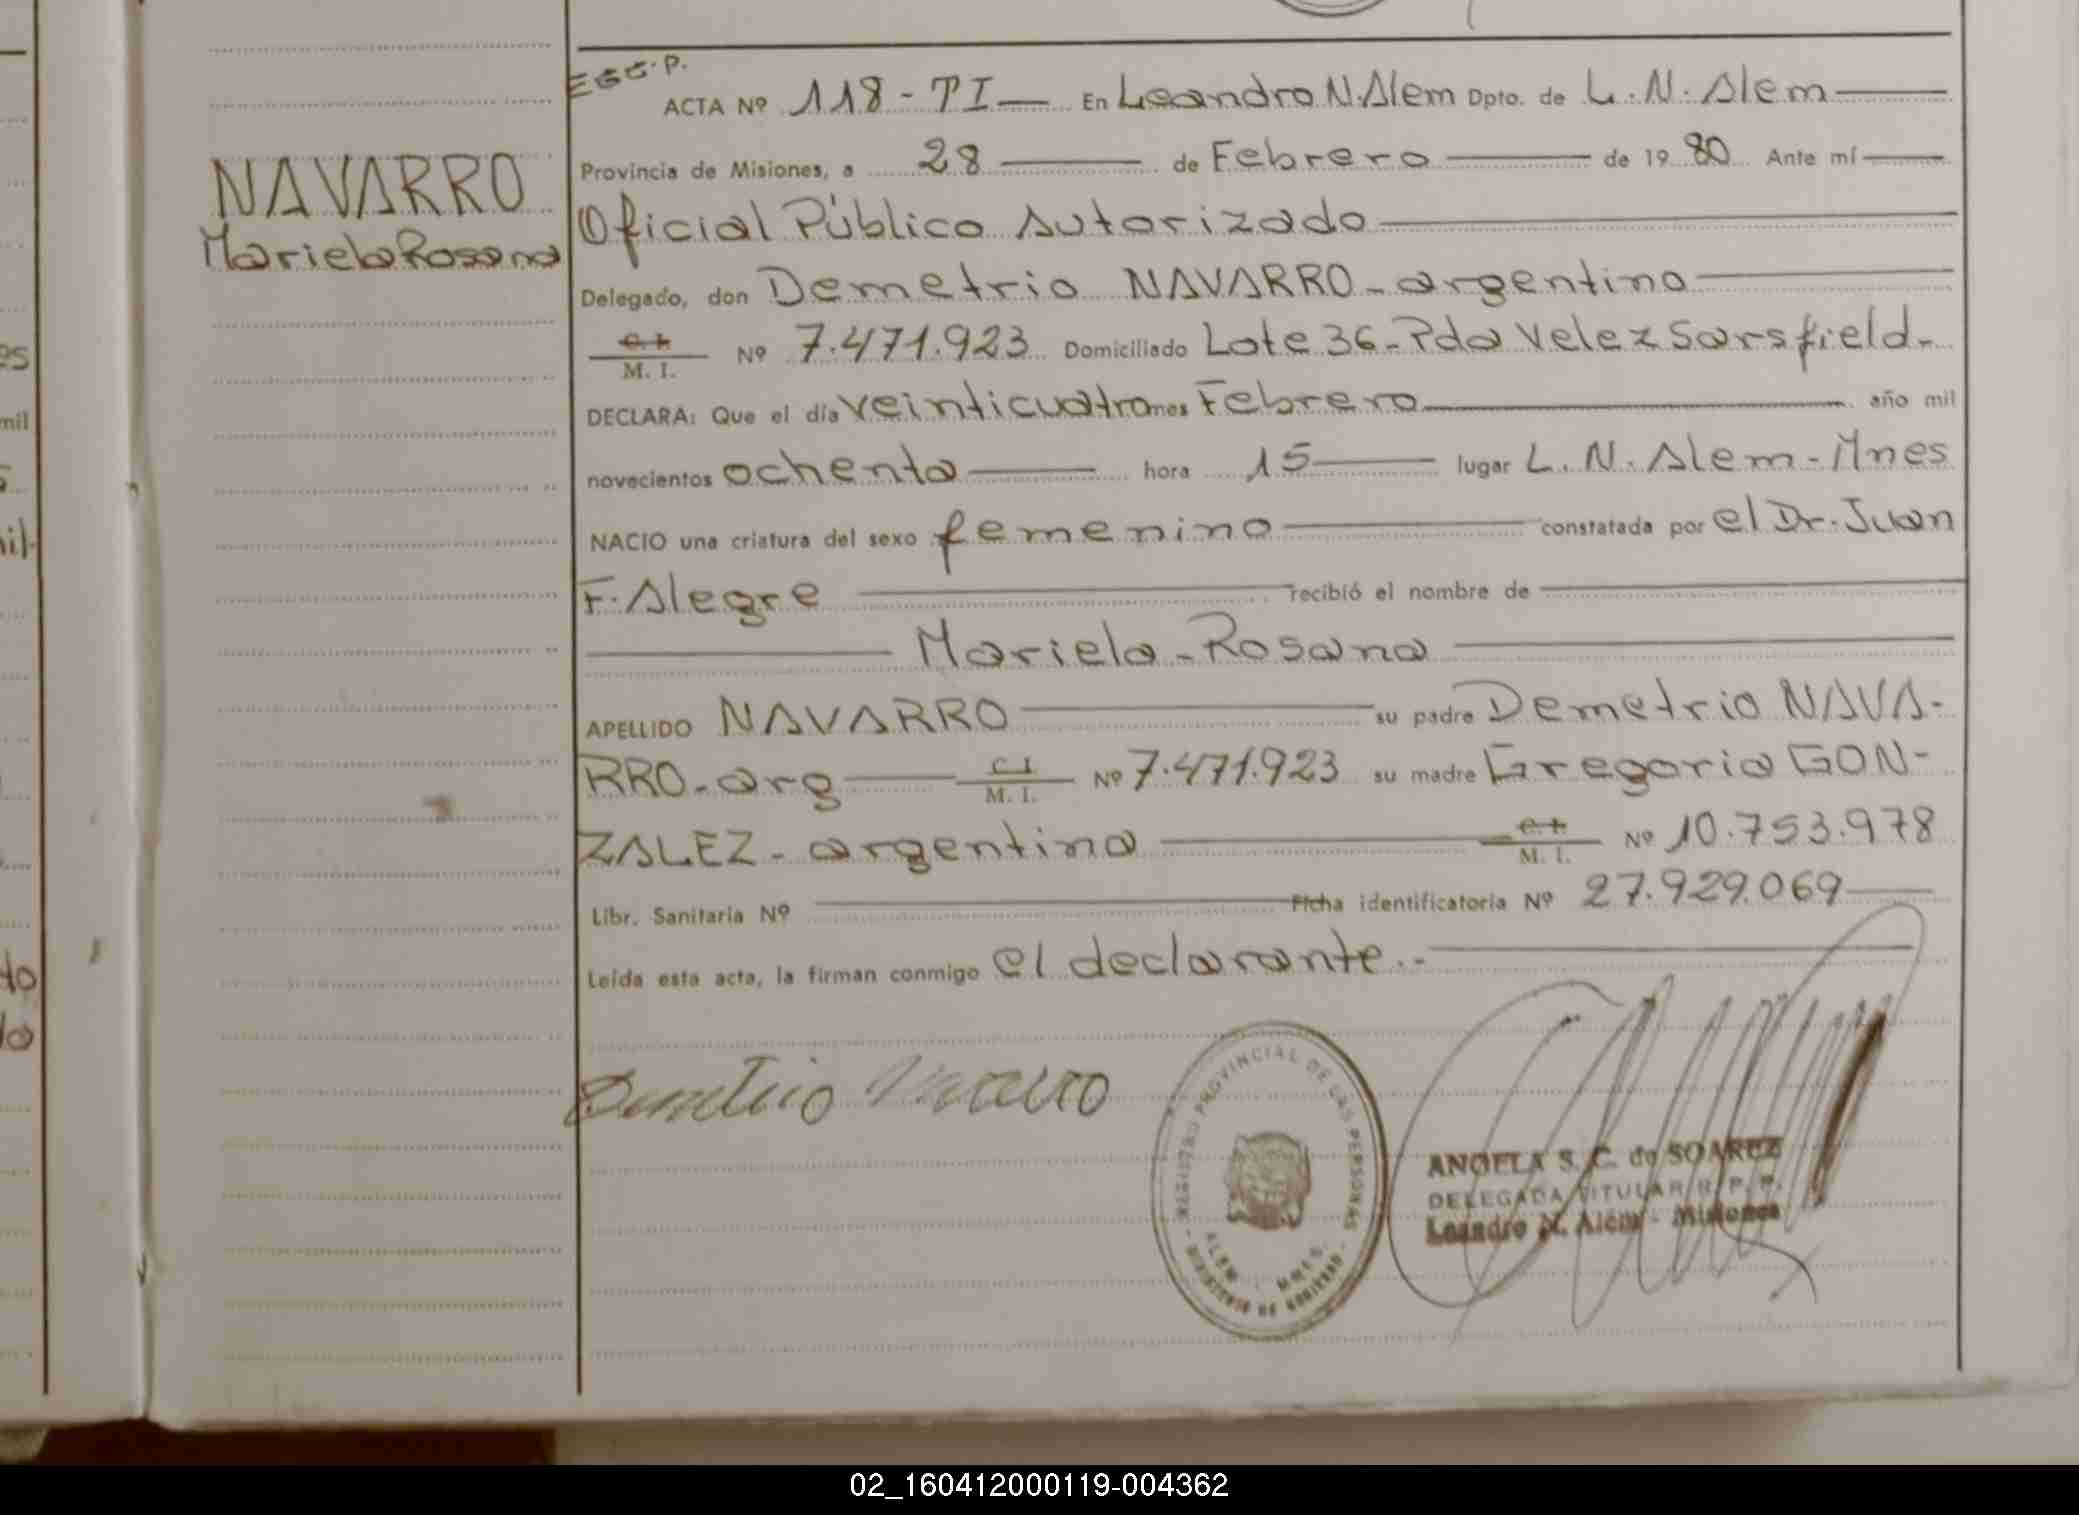 EGC.P.
ACTA Nº 118-TI En Leandro N. Alem Dpto. de L. N. Alem
NAVARRO
Mariela Rosana
Provincia de Misiones, a 28 de Febrero de 1980 Ante mí
Oficial Público Autorizado
Delegado, don Demetrio NAVARRO - argentino
C.I.
M. I. Nº 7.471.923 Domiciliado Lote 36 - Pda Velez Sarsfield-
DECLARA: Que el día veinticuatro mes Febrero año mil
novecientos ochenta hora 15 lugar L. N. Alem - Mnes
NACIO una criatura del sexo femenino constatada por el Dr. Juan
F. Alegre recibió el nombre de
Mariela - Rosana
APELLIDO NAVARRO su padre Demetrio NAVA-
RRO - arg C.I. M. I. Nº 7.471.923 su madre Gregoria GON-
ZALEZ - argentina C.I. M. I. Nº 10.753.978
Libr. Sanitaria Nº Ficha identificatoria Nº 27.929.069
Leída esta acta, la firman conmigo el declarante.-
Demetrio Navarro
REGISTRO PROVINCIAL DE LAS PERSONAS
ALEM MNES.
MINISTERIO DE GOBIERNO
ANGELA S. C. de SOAREZ
DELEGADA TITULAR R. P. P.
Leandro N. Alem - Misiones
02_160412000119-004362